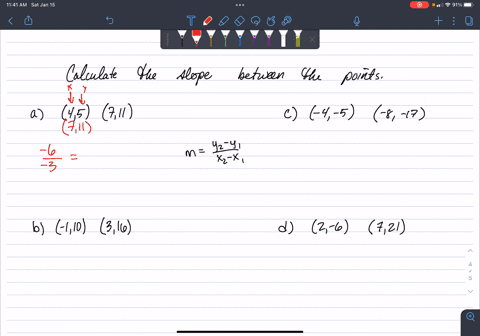 11:41 AM Sat Jan 15
91%
Calculate the slope between the points.
x y
a) (4,5) (7,11)
(7,11)
-6/-3 =
m = y2-y1/x2-x1
b) (-1,10) (3,16)
c) (-4,-5) (-8,-17)
d) (2,-6) (7,21)